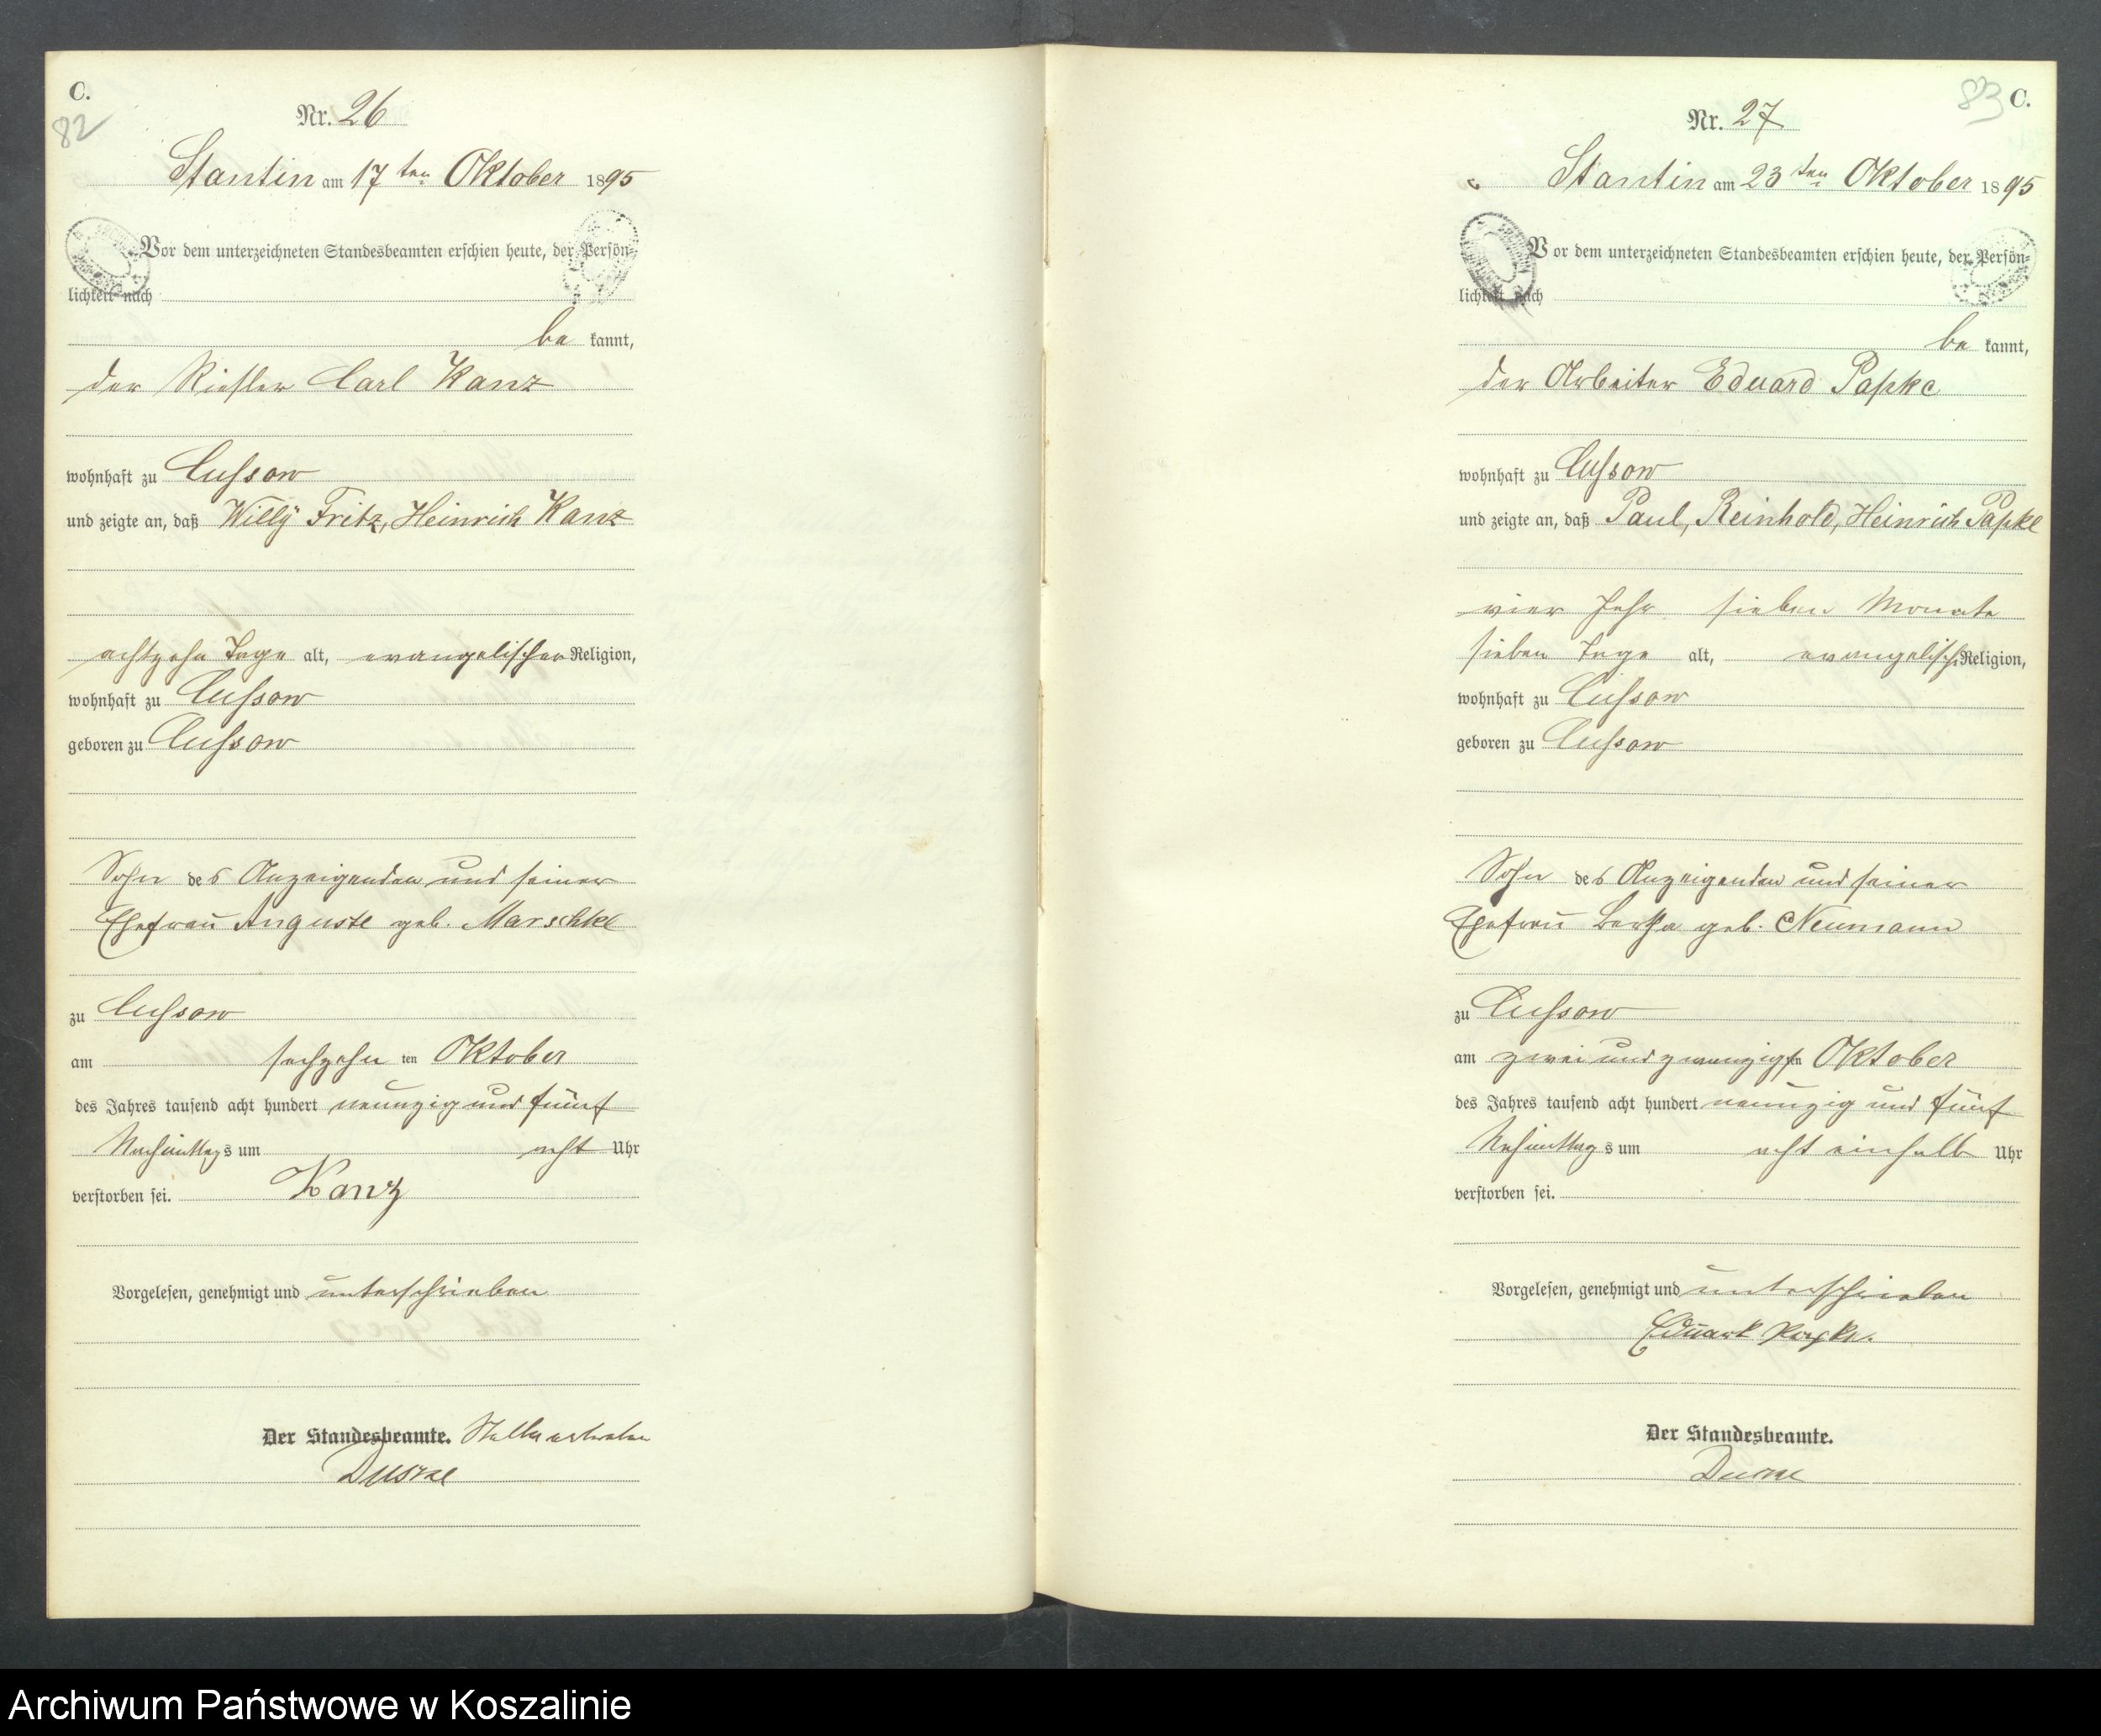 C.
82
Nr. 26
Stantin am 17 ten Oktober 1895
Vor dem unterzeichneten Standesbeamten erschien heute, der Persön-
lichkeit nach
be kannt,
der Carl Kanz
wohnhaft zu Cussow
und zeigte an, daß Willy Fritz, Heinrich Kanz
achtzehn Tage alt, evangelischer Religion,
wohnhaft zu Cussow
geboren zu Cussow
Sohn des Anzeigenden und seiner
Ehefrau Auguste geb. Marschke
zu Cussow
am sechzehn ten Oktober
des Jahres tausend acht hundert neunzig und fünf
Nachmittags um acht Uhr
verstorben sei. Kanz
Vorgelesen, genehmigt und unterschrieben
Der Standesbeamte.
C.
83
Nr. 27
Stantin am 23 ten Oktober 1895
Vor dem unterzeichneten Standesbeamten erschien heute, der Persön-
lichkeit nach
be kannt,
der Arbeiter Eduard Papke
wohnhaft zu Cussow
und zeigte an, daß Paul, Reinhold, Heinrich Papke
vier Jahr sieben Monate
sieben Tage alt, evangelisch Religion,
wohnhaft zu Cussow
geboren zu Cussow
Sohn des Anzeigenden und seiner
Ehefrau Bertha geb. Neumann
zu Cussow
am zwei und zwanzigsten Oktober
des Jahres tausend acht hundert neunzig und fünf
Nachmittags um acht einhalb Uhr
verstorben sei.
Vorgelesen, genehmigt und unterschrieben
Papke.
Der Standesbeamte.
Archiwum Państwowe w Koszalinie